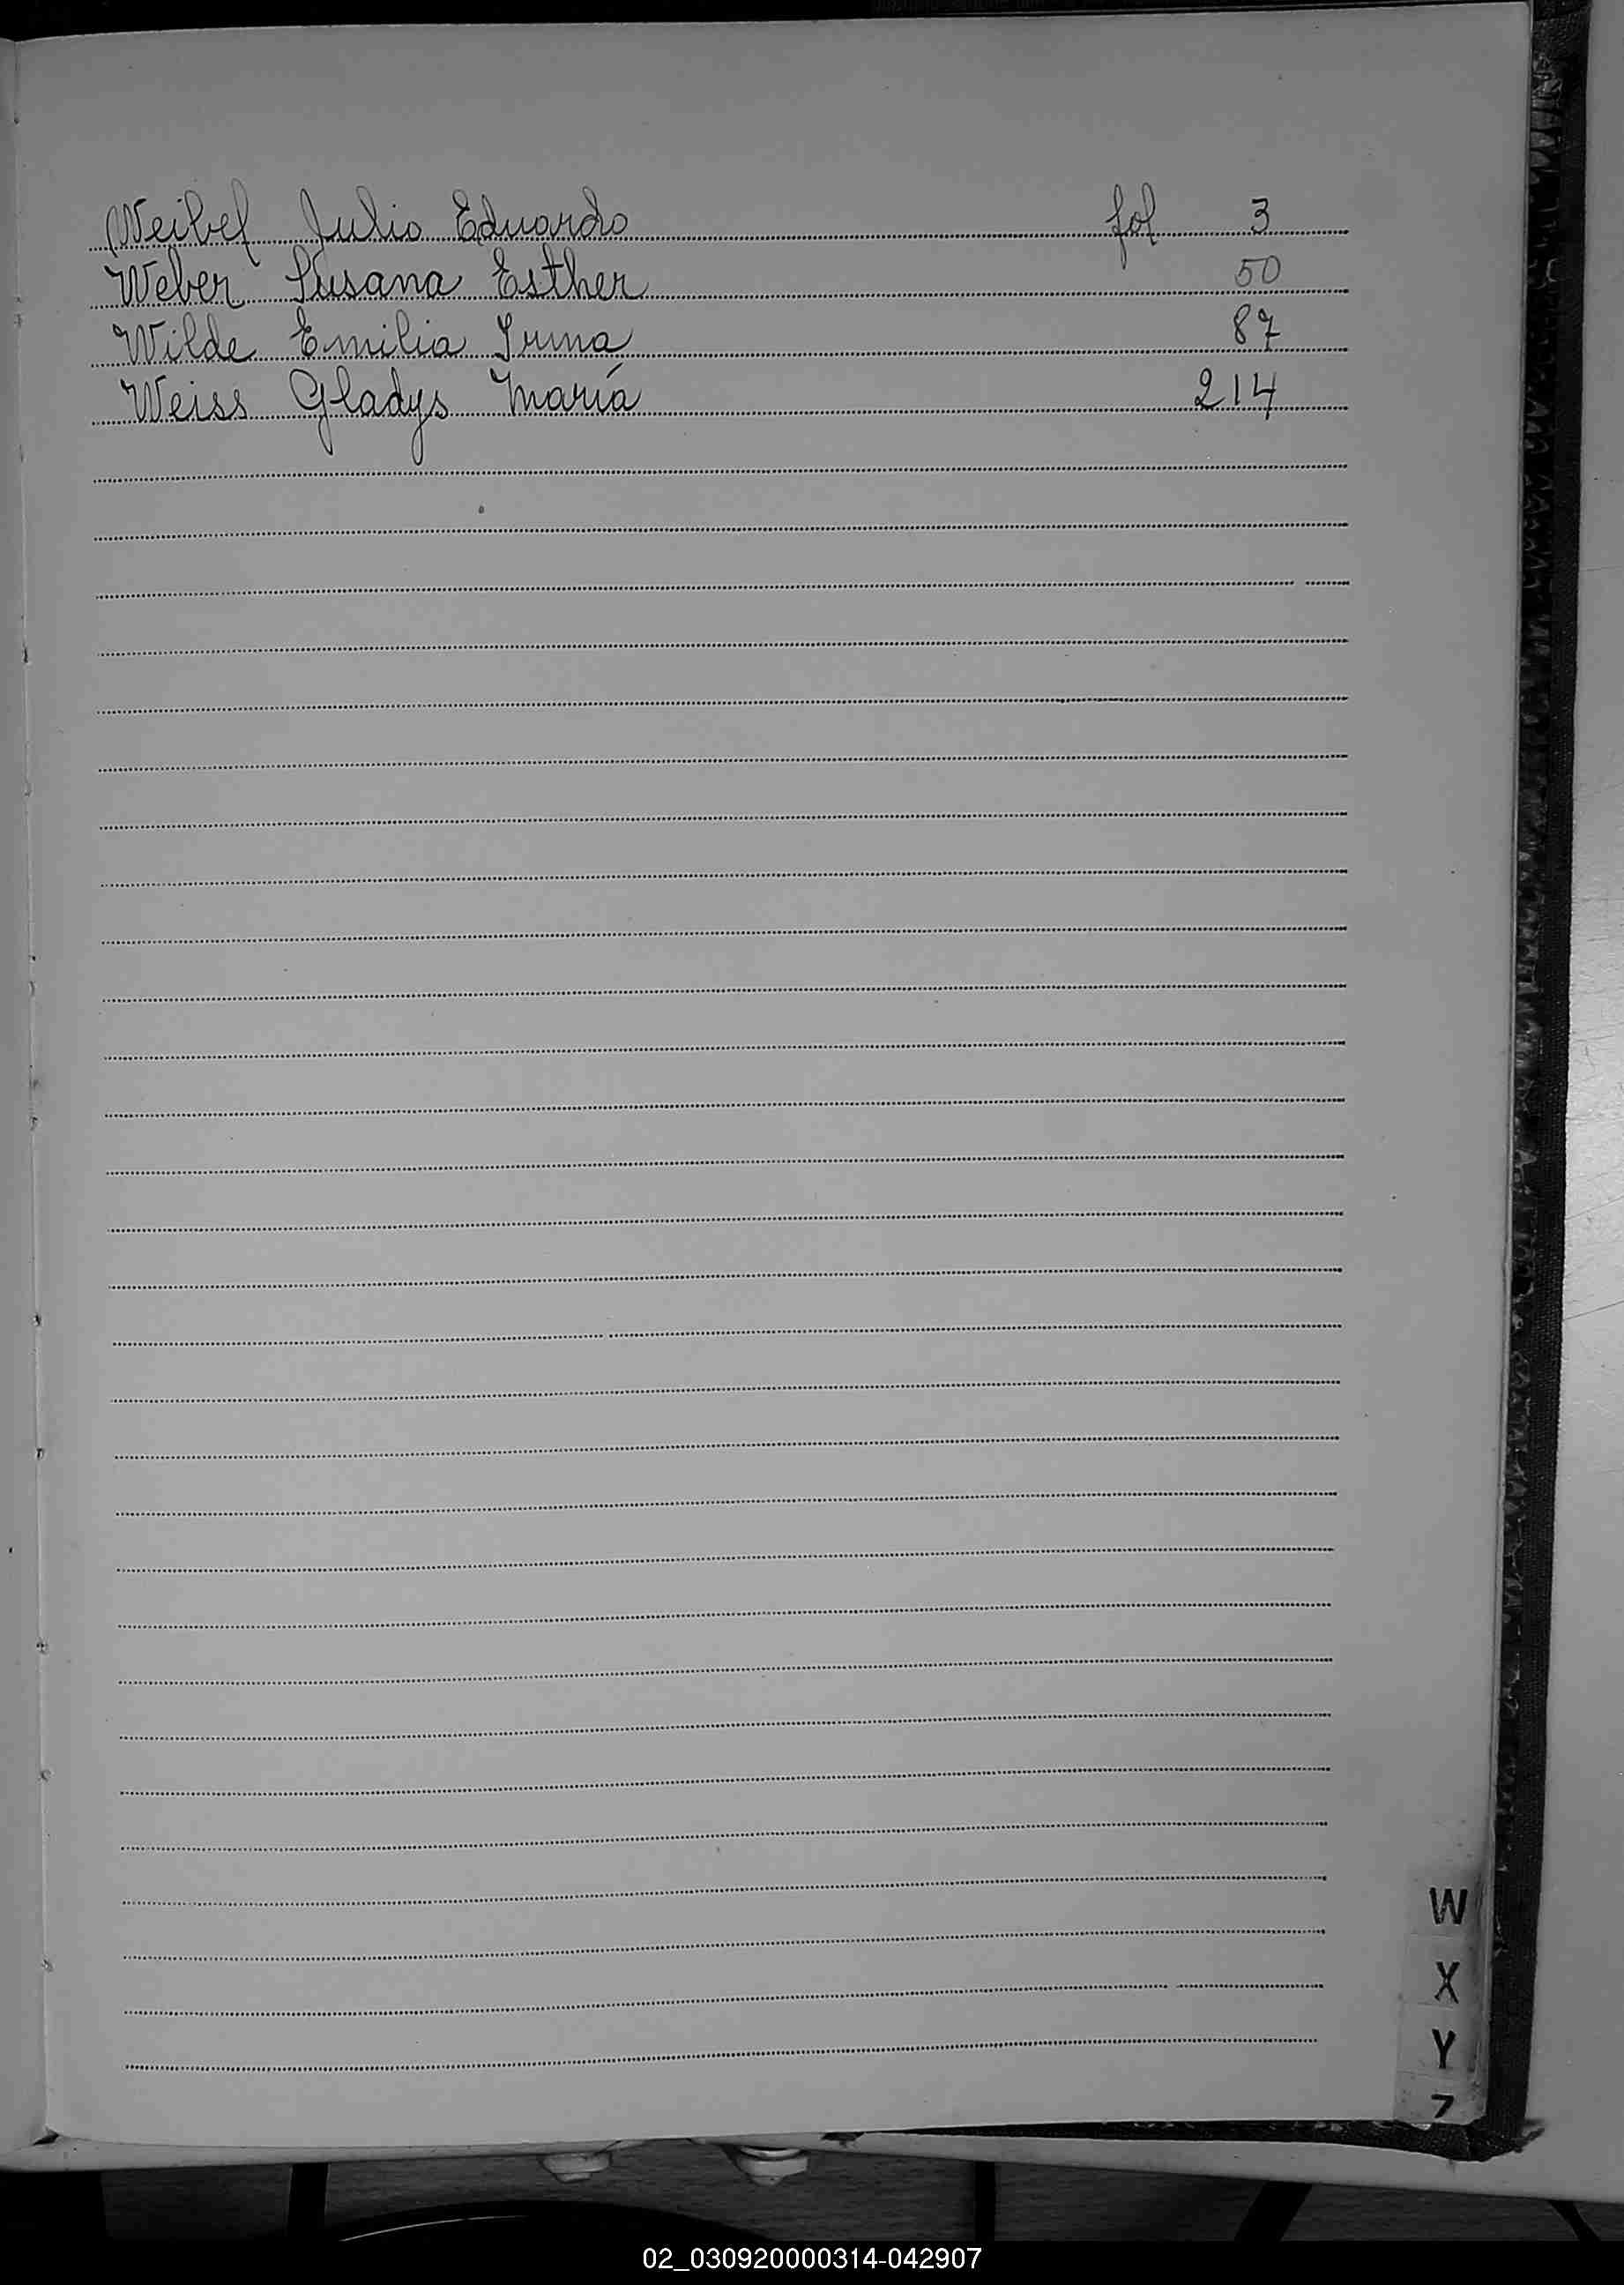 Weibel Julio Eduardo fol 3
Weber Susana Esther 50
Wilde Emilia Irma 87
Weiss Gladys María 214
W
X
Y
Z
02_030920000314-042907